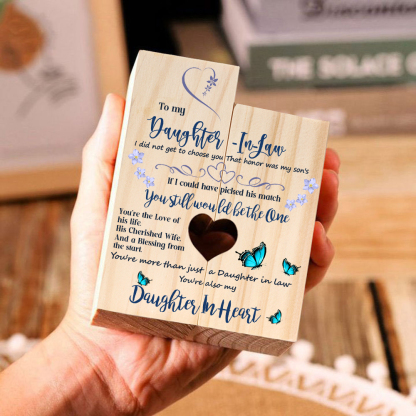 THE SOLACE OF
To my
Daughter-In-Law
I did not get to choose you That honor was my son's
If I could have picked his match
You still would be the One
You're the Love of
his life.
His Cherished Wife.
And a Blessing from
the start.
You're more than just a Daughter in law
You're also my
Daughter In Heart